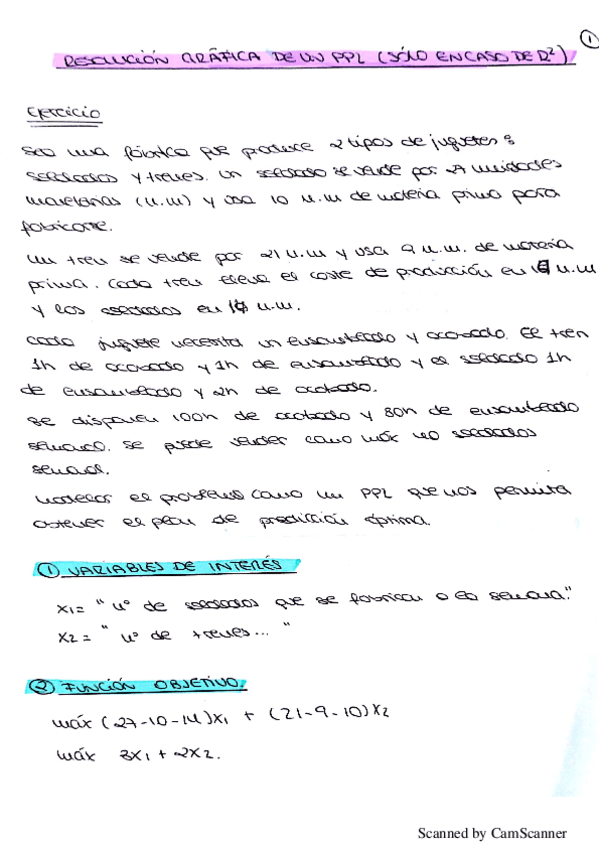 1
RESOLUCIÓN GRÁFICA DE UN PPL (SÓLO EN CASO DE R²)
Ejercicio
Sea una fábrica que produce 2 tipos de juguetes:
soldados y trenes. Un soldado se vende por 27 unidades
monetarias (u.m) y usa 10 u.m de materia prima para
fabricarse.
Un tren se vende por 21 u.m y usa 9 u.m. de materia
prima. Cada tren eleva el coste de producción en 10 u.m
y los soldados en 14 u.m.
Cada juguete necesita un ensamblado y acabado. El tren
1h de acabado y 1h de ensamblado y el soldado 1h
de ensamblado y 2h de acabado.
Se disponen 100h de acabado y 80h de ensamblado
semanal. Se puede vender como máx 40 soldados
semanal.
Modelar el problema como un PPL que nos permita
obtener el plan de producción óptima.
① VARIABLES DE INTERÉS
X1 = "nº de soldados que se fabrican a la semana."
X2 = "nº de trenes... "
② FUNCIÓN OBJETIVO.
máx (27-10-14)X1 + (21-9-10)X2
máx 3X1 + 2X2.
Scanned by CamScanner